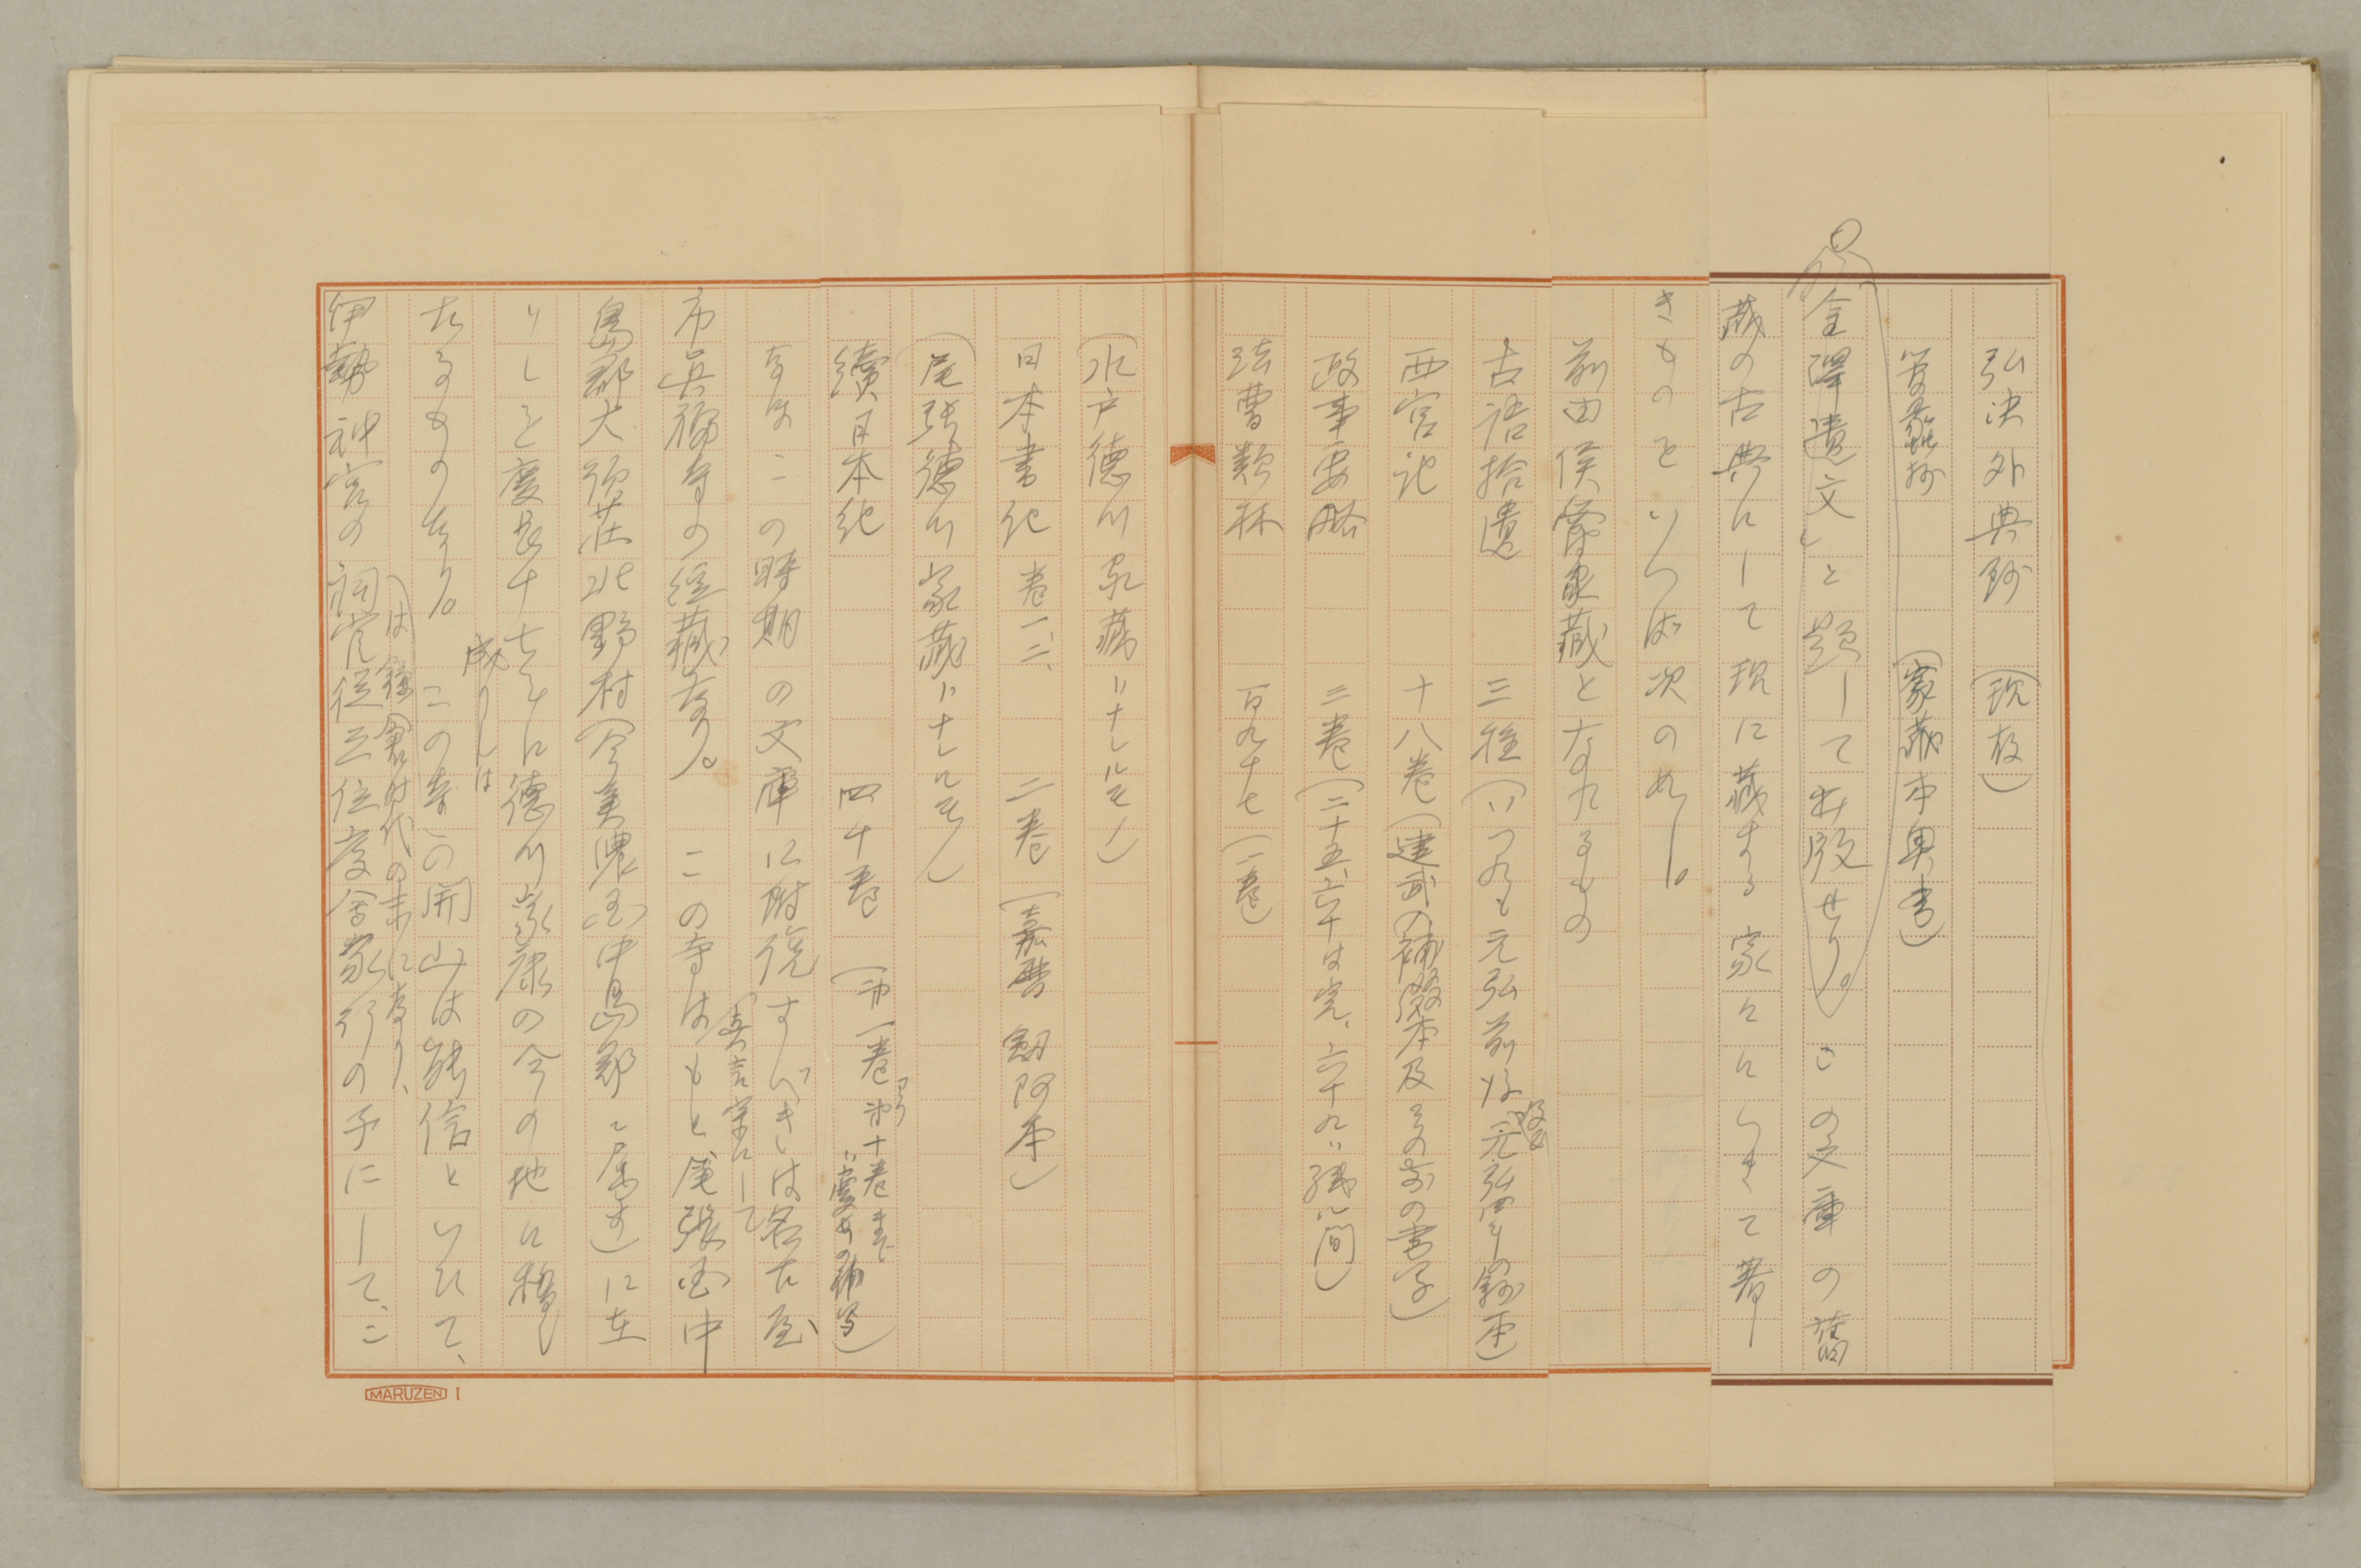 弘决外典鈔　（現存）
管蠡抄　（家藏本奥書）
金澤遺文」と題して出版せり。この文庫の舊
藏の古典にして現に藏する家々にしきて著し
きものをいへば次の如し。
前田侯爵家藏となれるもの
古語拾遺　三種（いづれも元弘前後、元弘四年の釼本）
西宮記　十八巻（建武の補綴本及その前の書写）
政事要略　三巻（二十五、六十は完、六十九は殘簡）
法曹類林　百九十七（一巻）
（水戸徳川家藏トナレルモノ）
日本書紀 巻一、二、　二巻（嘉暦 釼阿本）
（尾張徳川家藏トナレルモノ）
續日本紀　四十巻（第一巻ヨリ第十巻まで
は慶長の補写）
なほこの時期の文庫に附説すべきは名古屋
市眞福寺の經藏なり。この寺は
真言宗にして
もと尾張国中
島郡大須荘北野村（今美濃国中島郡に属す）に在
りしを慶長十七年に徳川家康の今の地に移し
たるものなり。この寺の
成りしは
開山は能信といひて、
は鎌倉時代の末になり、
伊勢神宮の祠官從三位度會家行の子にして、こ
MARUZEN 1